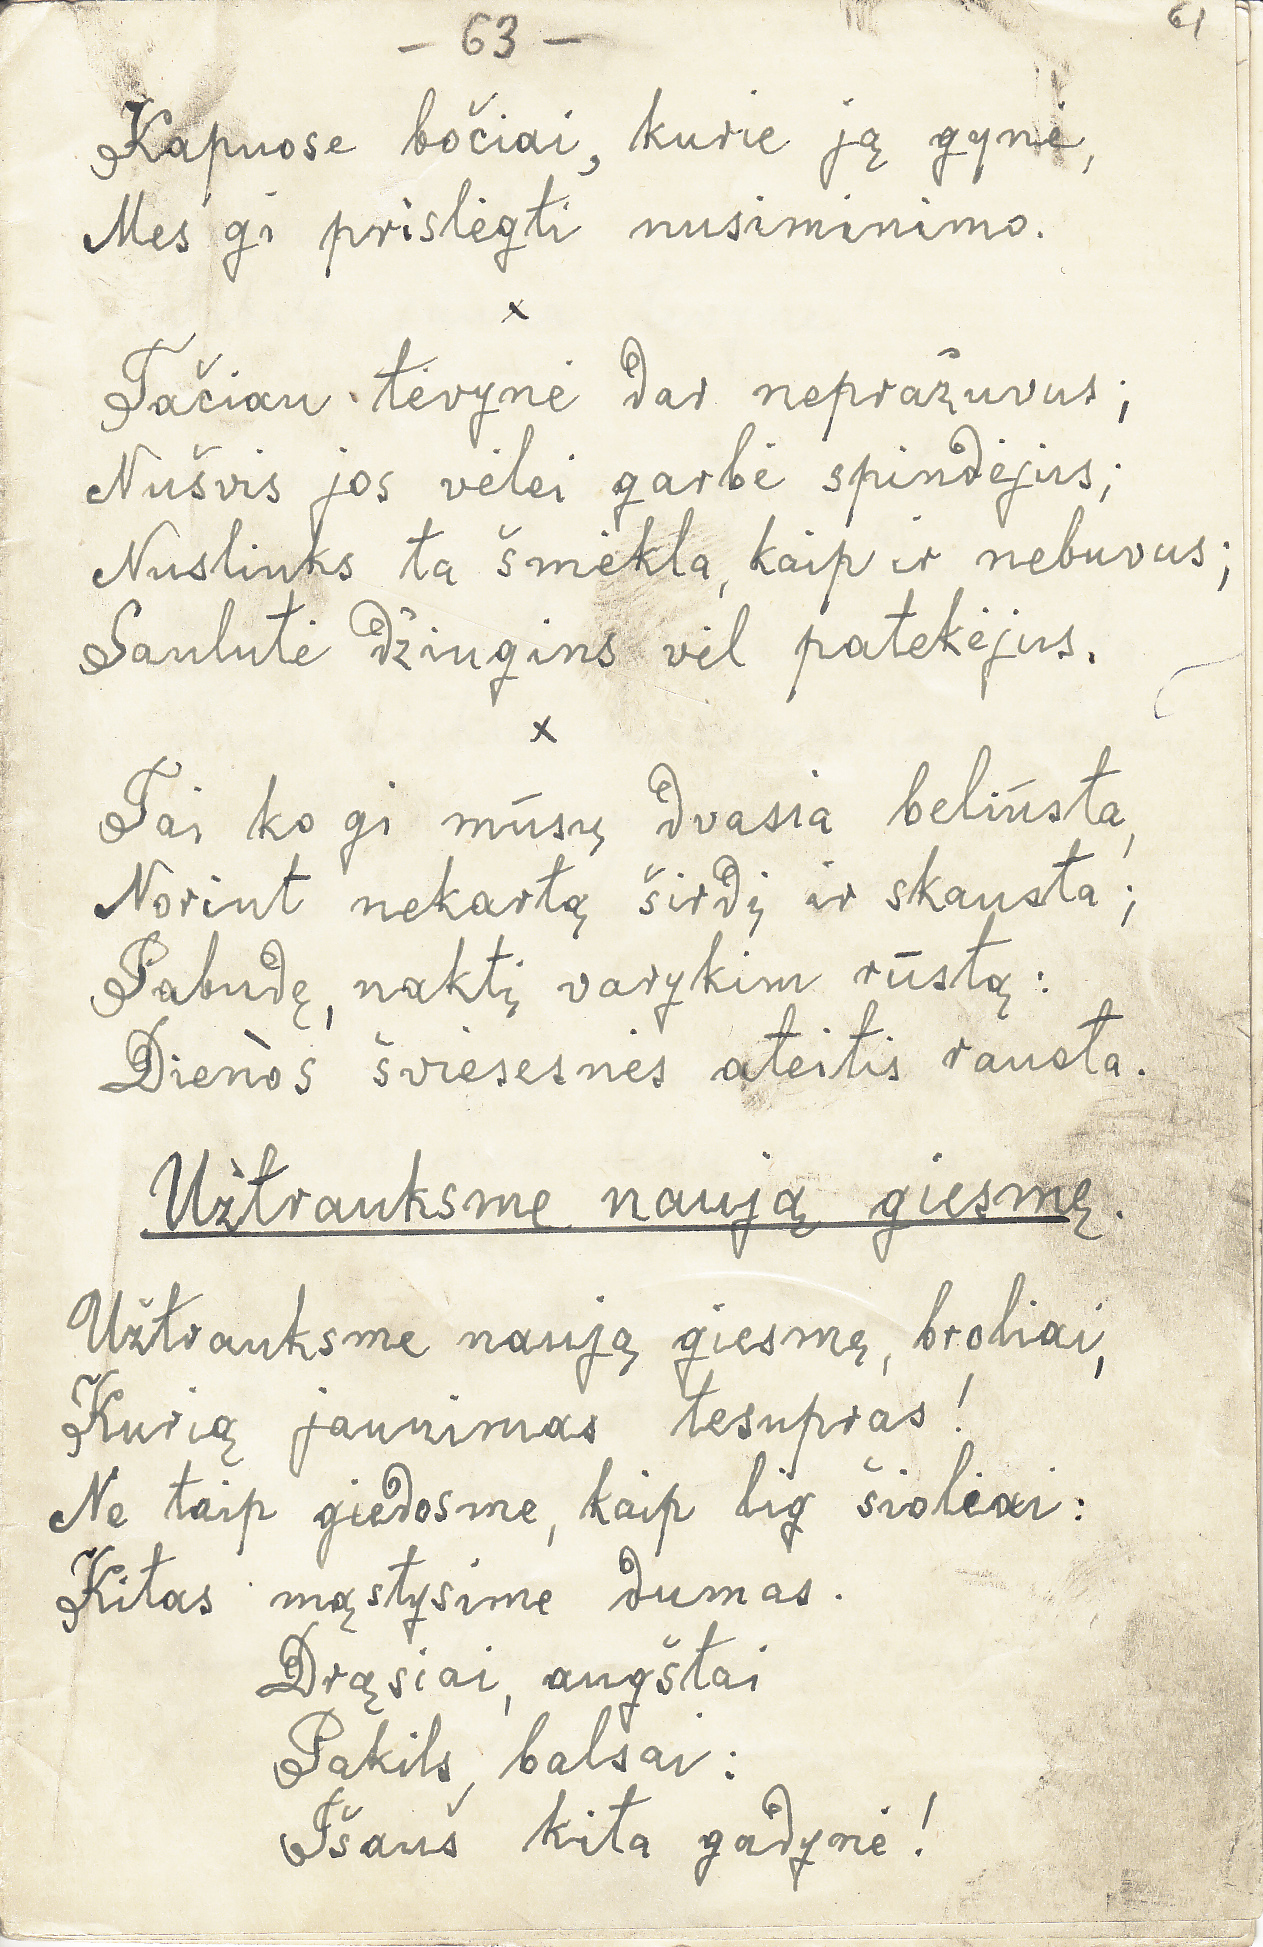 - 63 -
61
Kapuose bočiai, kurie ją gynė,
Mes gi prislėgti nusiminimo.
x
Tačiau tėvynė dar nepražuvus;
Nušvis jos vėlei garbė spindėjus;
Nuslinks ta šmėkla, kaip ir nebuvus;
Saulutė džiugins vėl patekėjus.
x
Tai ko gi mūsų dvasia beliūsta,
Norint nekartą širdį ir skausta;
Pabudę, naktį varykim rūstą:
Dienòs šviesesnės ateitis rausta.
Užtrauksme naują giesmę.
Užtrauksme naują giesmę, broliai,
Kurią jaunimas tesupras!
Ne taip giedosme, kaip lig šioliai:
Kitas mąstysime dumas.
Drąsiai, augštai
Pakils, balsai:
Išauš kita gadynė!